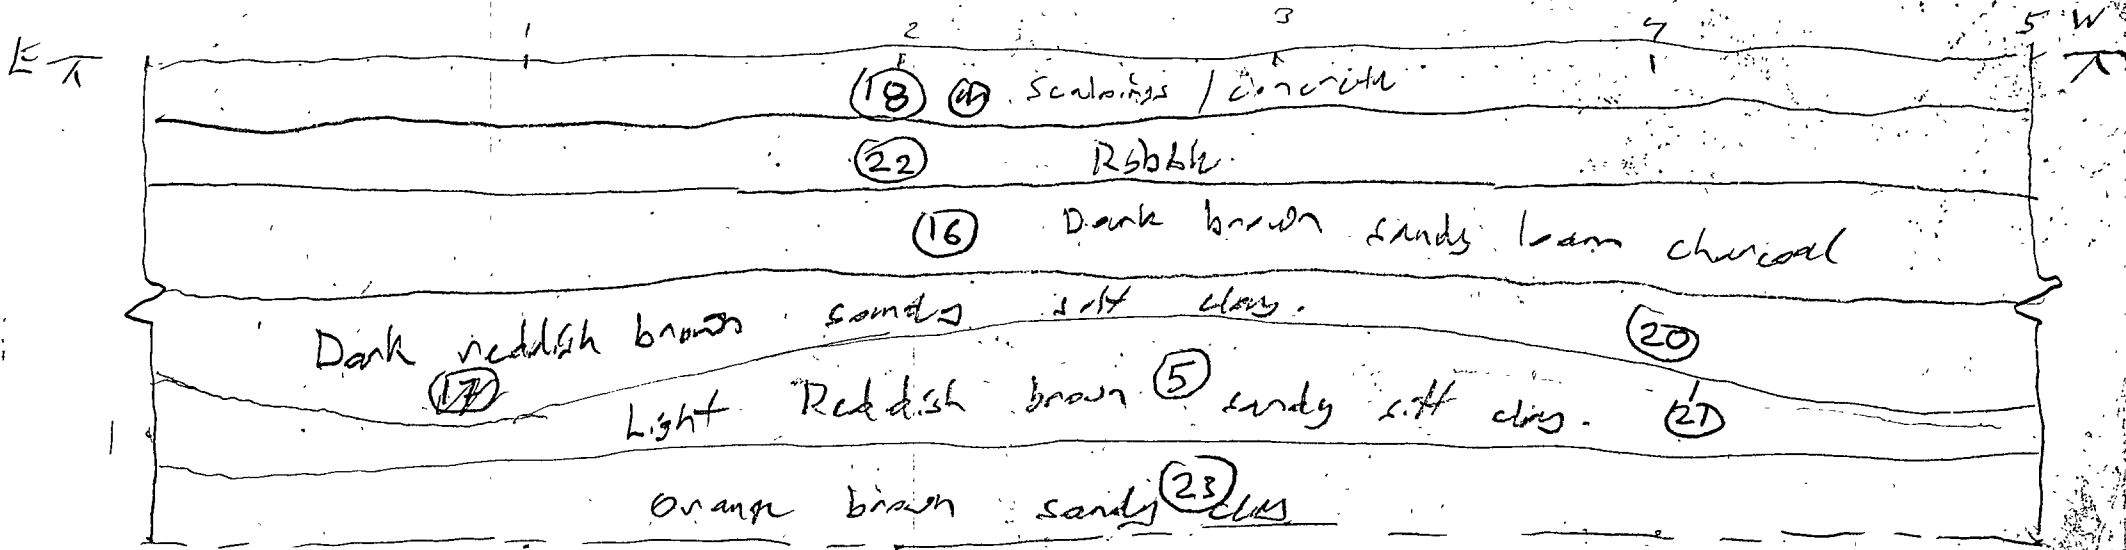 1 2 3 4 5
E W
18 Scalpings / Concrete
22 Rubble
16 Dark brown sandy loam charcoal
Dark reddish brown sandy silt clay. 20
17
Light Reddish brown 5 sandy silt clay. 21
1
Orange brown sandy 23 clay